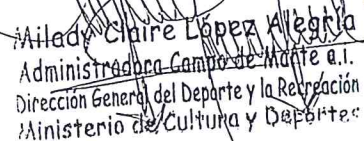 Milady Claire López Alegría
Administradora Campo de Marte a.i.
Dirección General del Deporte y la Recreación
Ministerio de Cultura y Deportes